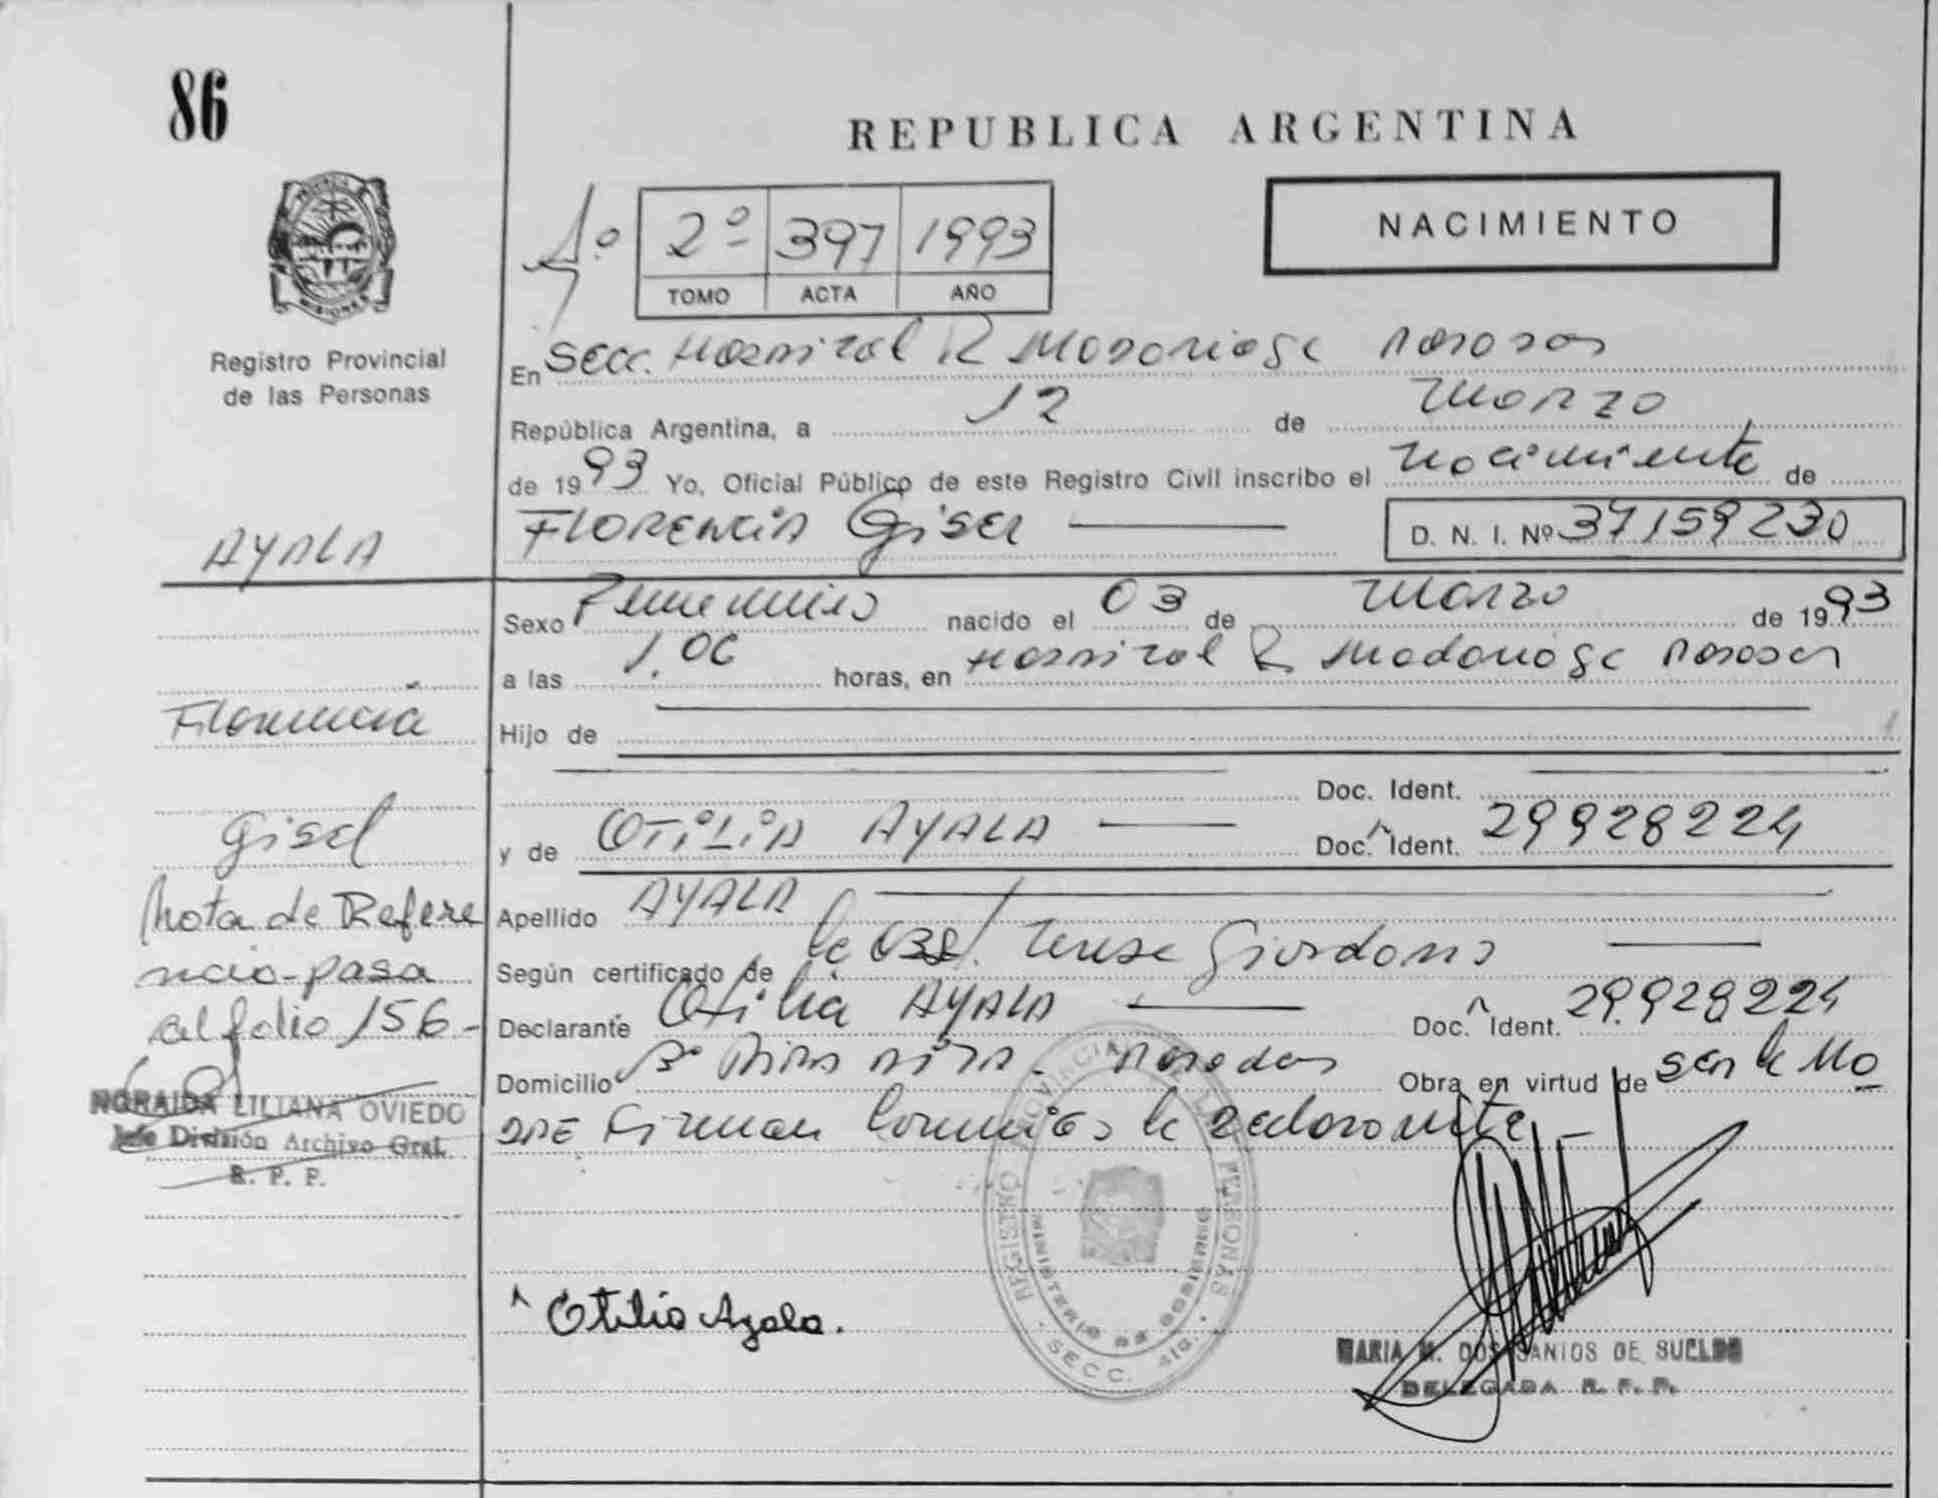 86
REPUBLICA ARGENTINA
MISIONES
Registro Provincial
de las Personas
4º
2º 397 1993
TOMO ACTA AÑO
NACIMIENTO
En Secc. Hospital R Madariaga Posadas
República Argentina, a 12 de Marzo
de 1993 Yo, Oficial Público de este Registro Civil inscribo el nacimiento de
FLORENCIA Gisel D. N. I. Nº 37159230
AYALA
Sexo Femenino nacido el 03 de Marzo de 1993
a las 1.00 horas, en Hospital R Madariaga Posadas
Florencia
Hijo de
Doc. Ident.
Gisel
y de OTILIA AYALA Doc. Ident. 29928224
Nota de Refere
Apellido AYALA
ncia-pasa
Según certificado de la Obst. Teresa Giordano
al folio 156-
Declarante Otilia AYALA Doc. Ident. 29.928224
Domicilio Bº Posadas Obra en virtud de ser la Ma
NORAIDA LILIANA OVIEDO
Jefe División Archivo Gral.
R. P. P.
dre Firman la declarante.-
REGISTRO PROVINCIAL DE LAS PERSONAS
MINISTERIO DE GOBIERNO
SECC. 4ta.
Otilia Ayala.
MARIA M. DOS SANTOS DE SUELDO
DELEGADA R. P. P.